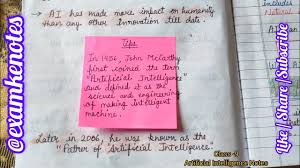 @examkenotes
→ AI has made more impact on humanity
than any other Innovation till date.
Tips
In 1956, John McCarthy
first coined the term
"Artificial Intelligence"
and defined it as the
science and engineering
of making intelligent
machine.
Later in 2006, he was known as the
"Father of Artificial Intelligence".
Class-9
Artificial Intelligence Notes
Like | Share | Subscribe